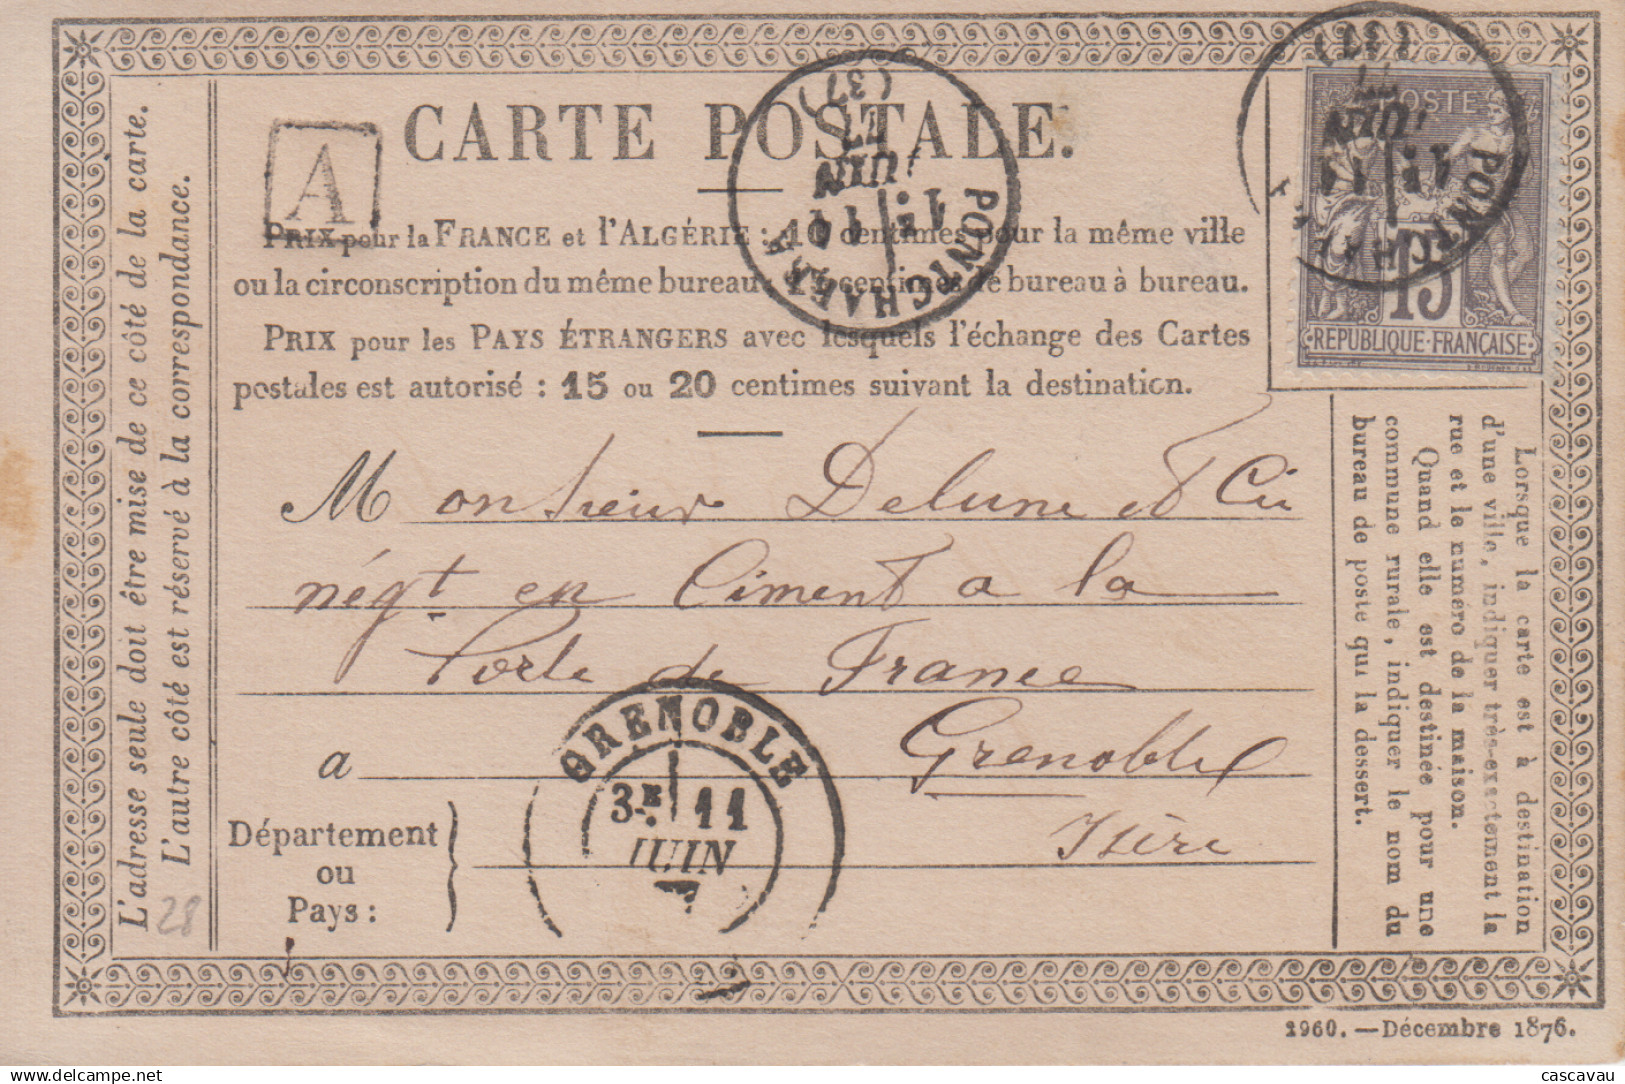 CARTE POSTALE.
A
PRIX pour la FRANCE et l'ALGÉRIE : 10 centimes pour la même ville
ou la circonscription du même bureau, centimes de bureau à bureau.
PRIX pour les PAYS ÉTRANGERS avec lesquels l'échange des Cartes
postales est autorisé : 15 ou 20 centimes suivant la destination.
PONTCHARRA
11 JUIN 77
(37)
POSTE
15
REPUBLIQUE·FRANÇAISE
PONTCHA
11 JUIN 77
(37)
Monsieur Delune et Cie
négt en Ciment a la
Porte de France
a Grenoble
Isère
Département
ou
Pays :
GRENOBLE
3E 11
JUIN
7
L'adresse seule doit être mise de ce côté de la carte.
L'autre côté est réservé à la correspondance.
28
Lorsque la carte est à destination
d'une ville, indiquer très-exactement la
rue et le numéro de la maison.
Quand elle est destinée pour une
commune rurale, indiquer le nom du
bureau de poste qui la dessert.
1960. — Décembre 1876.
www.delcampe.net
cascavau